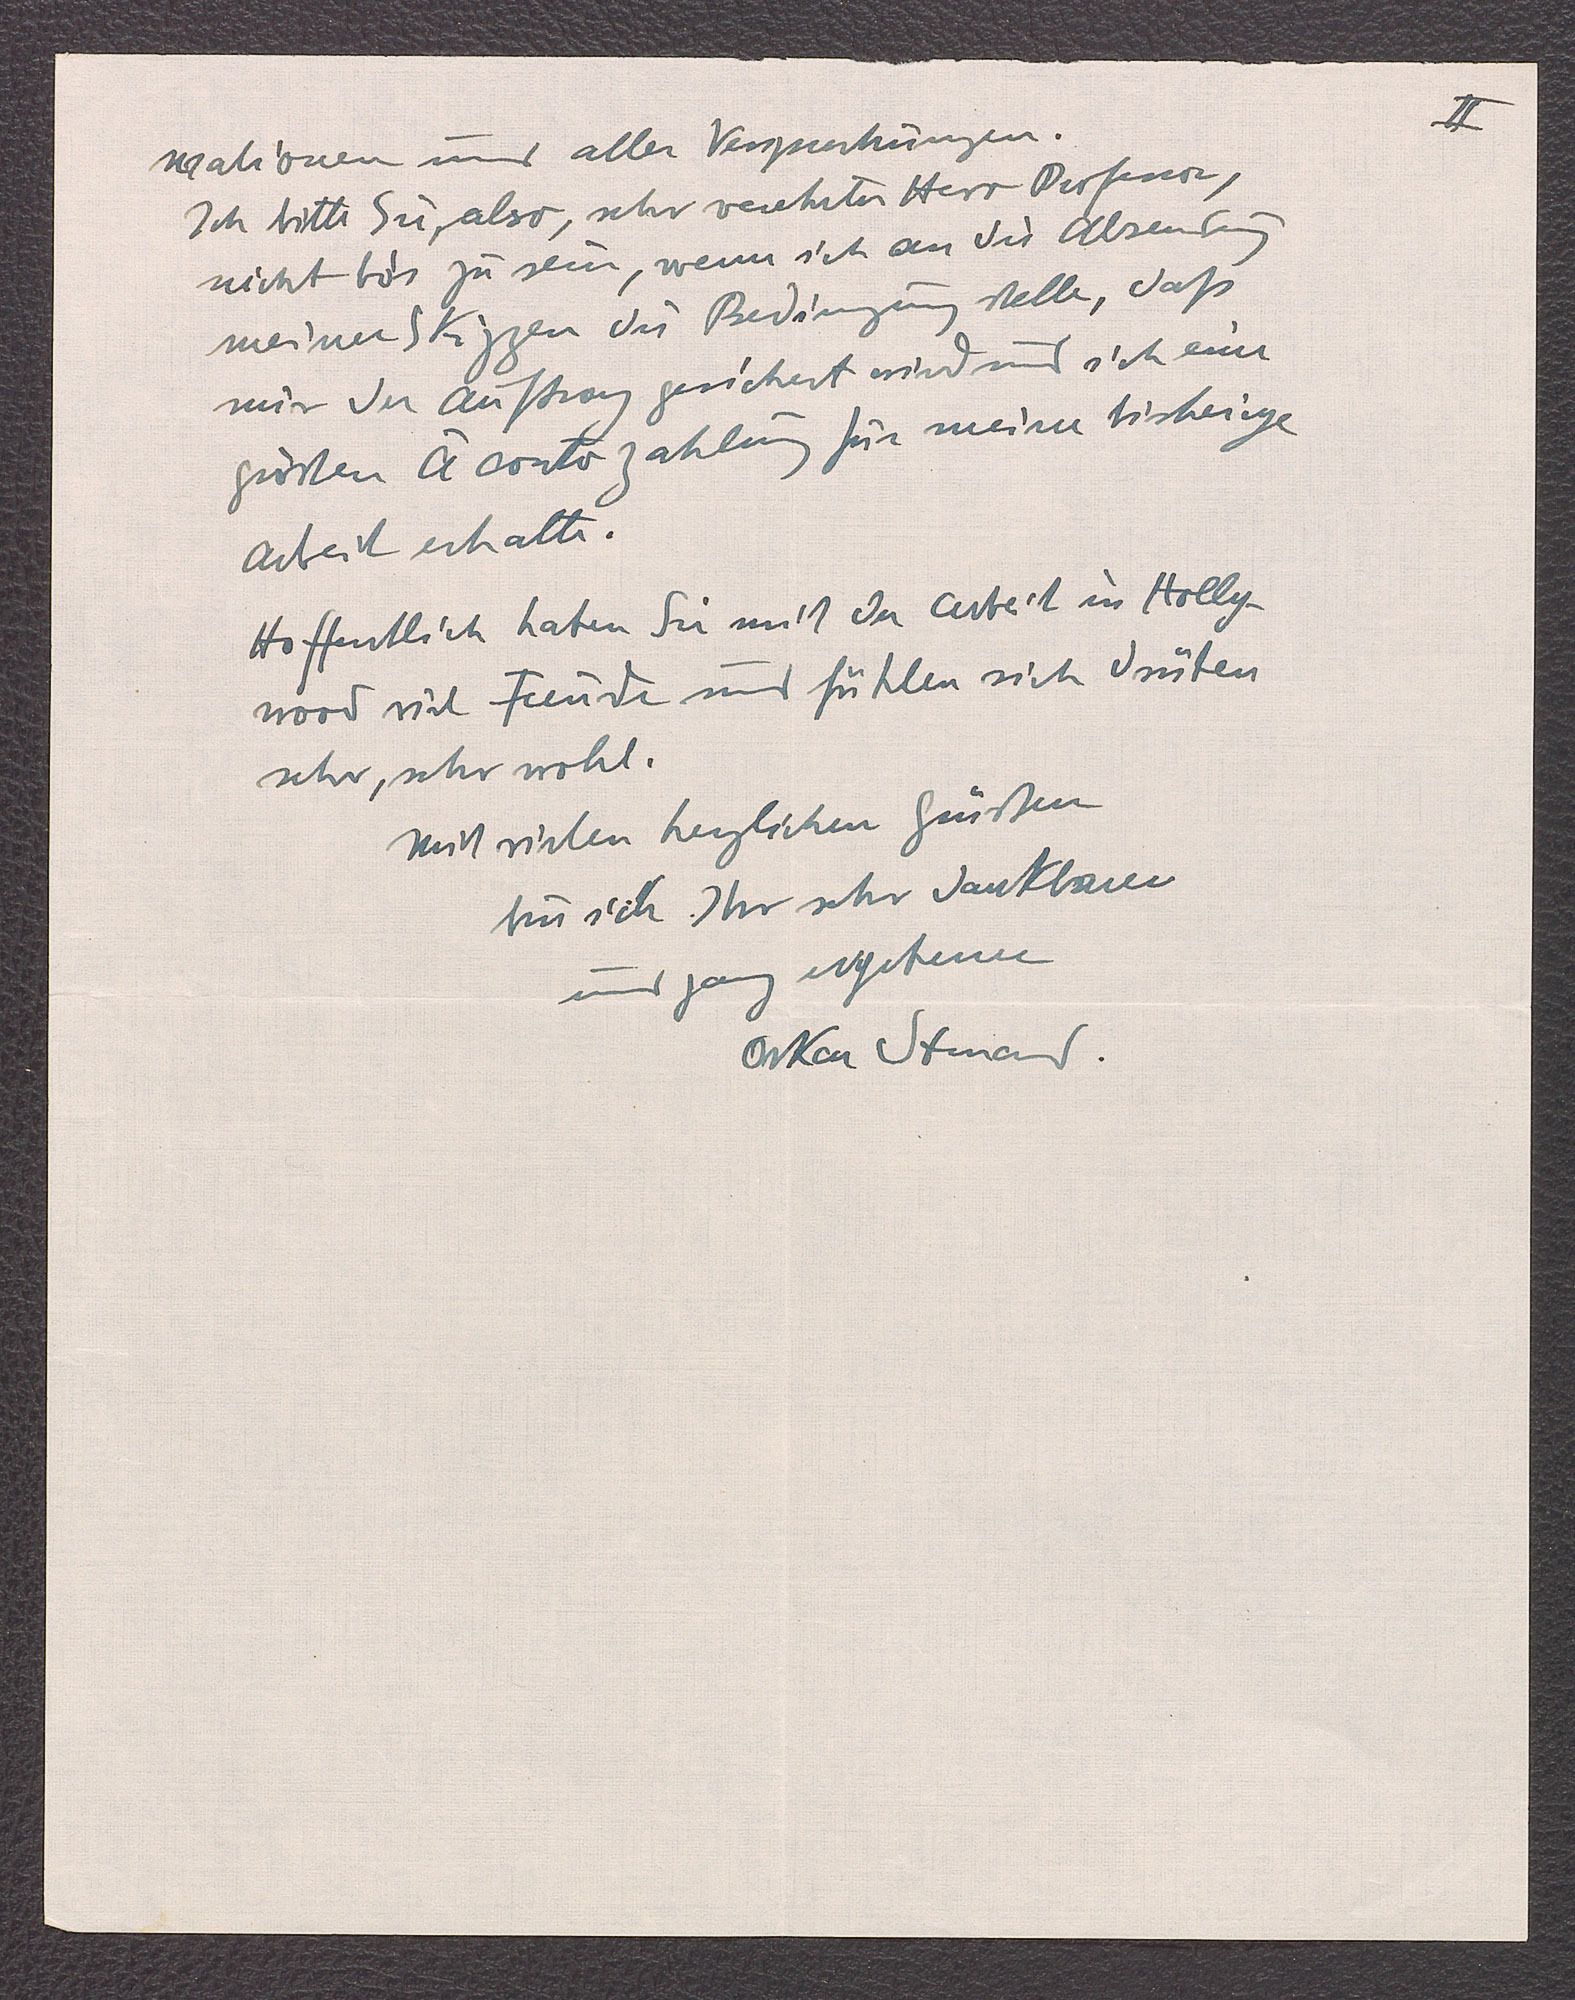 II
mationen und aller Versprechungen.
Ich bitte Sie, also, sehr verehrter Herr Professor,
nicht bös zu sein, wenn ich an die Absendung
meiner Skizzen die Bedingung stelle, daß
mir der Auftrag gesichert wird und ich eine
größere à conto zahlung für meine bisherige
Arbeit erhalte.
Hoffentlich haben Sie mit der Arbeit in Holly-
wood viel Freude und fühlen sich drüben
sehr, sehr wohl.
Mit vielen herzlichen Grüßen
bin ich Ihr sehr dankbarer
und ganz ergebener
Oskar Strnad.